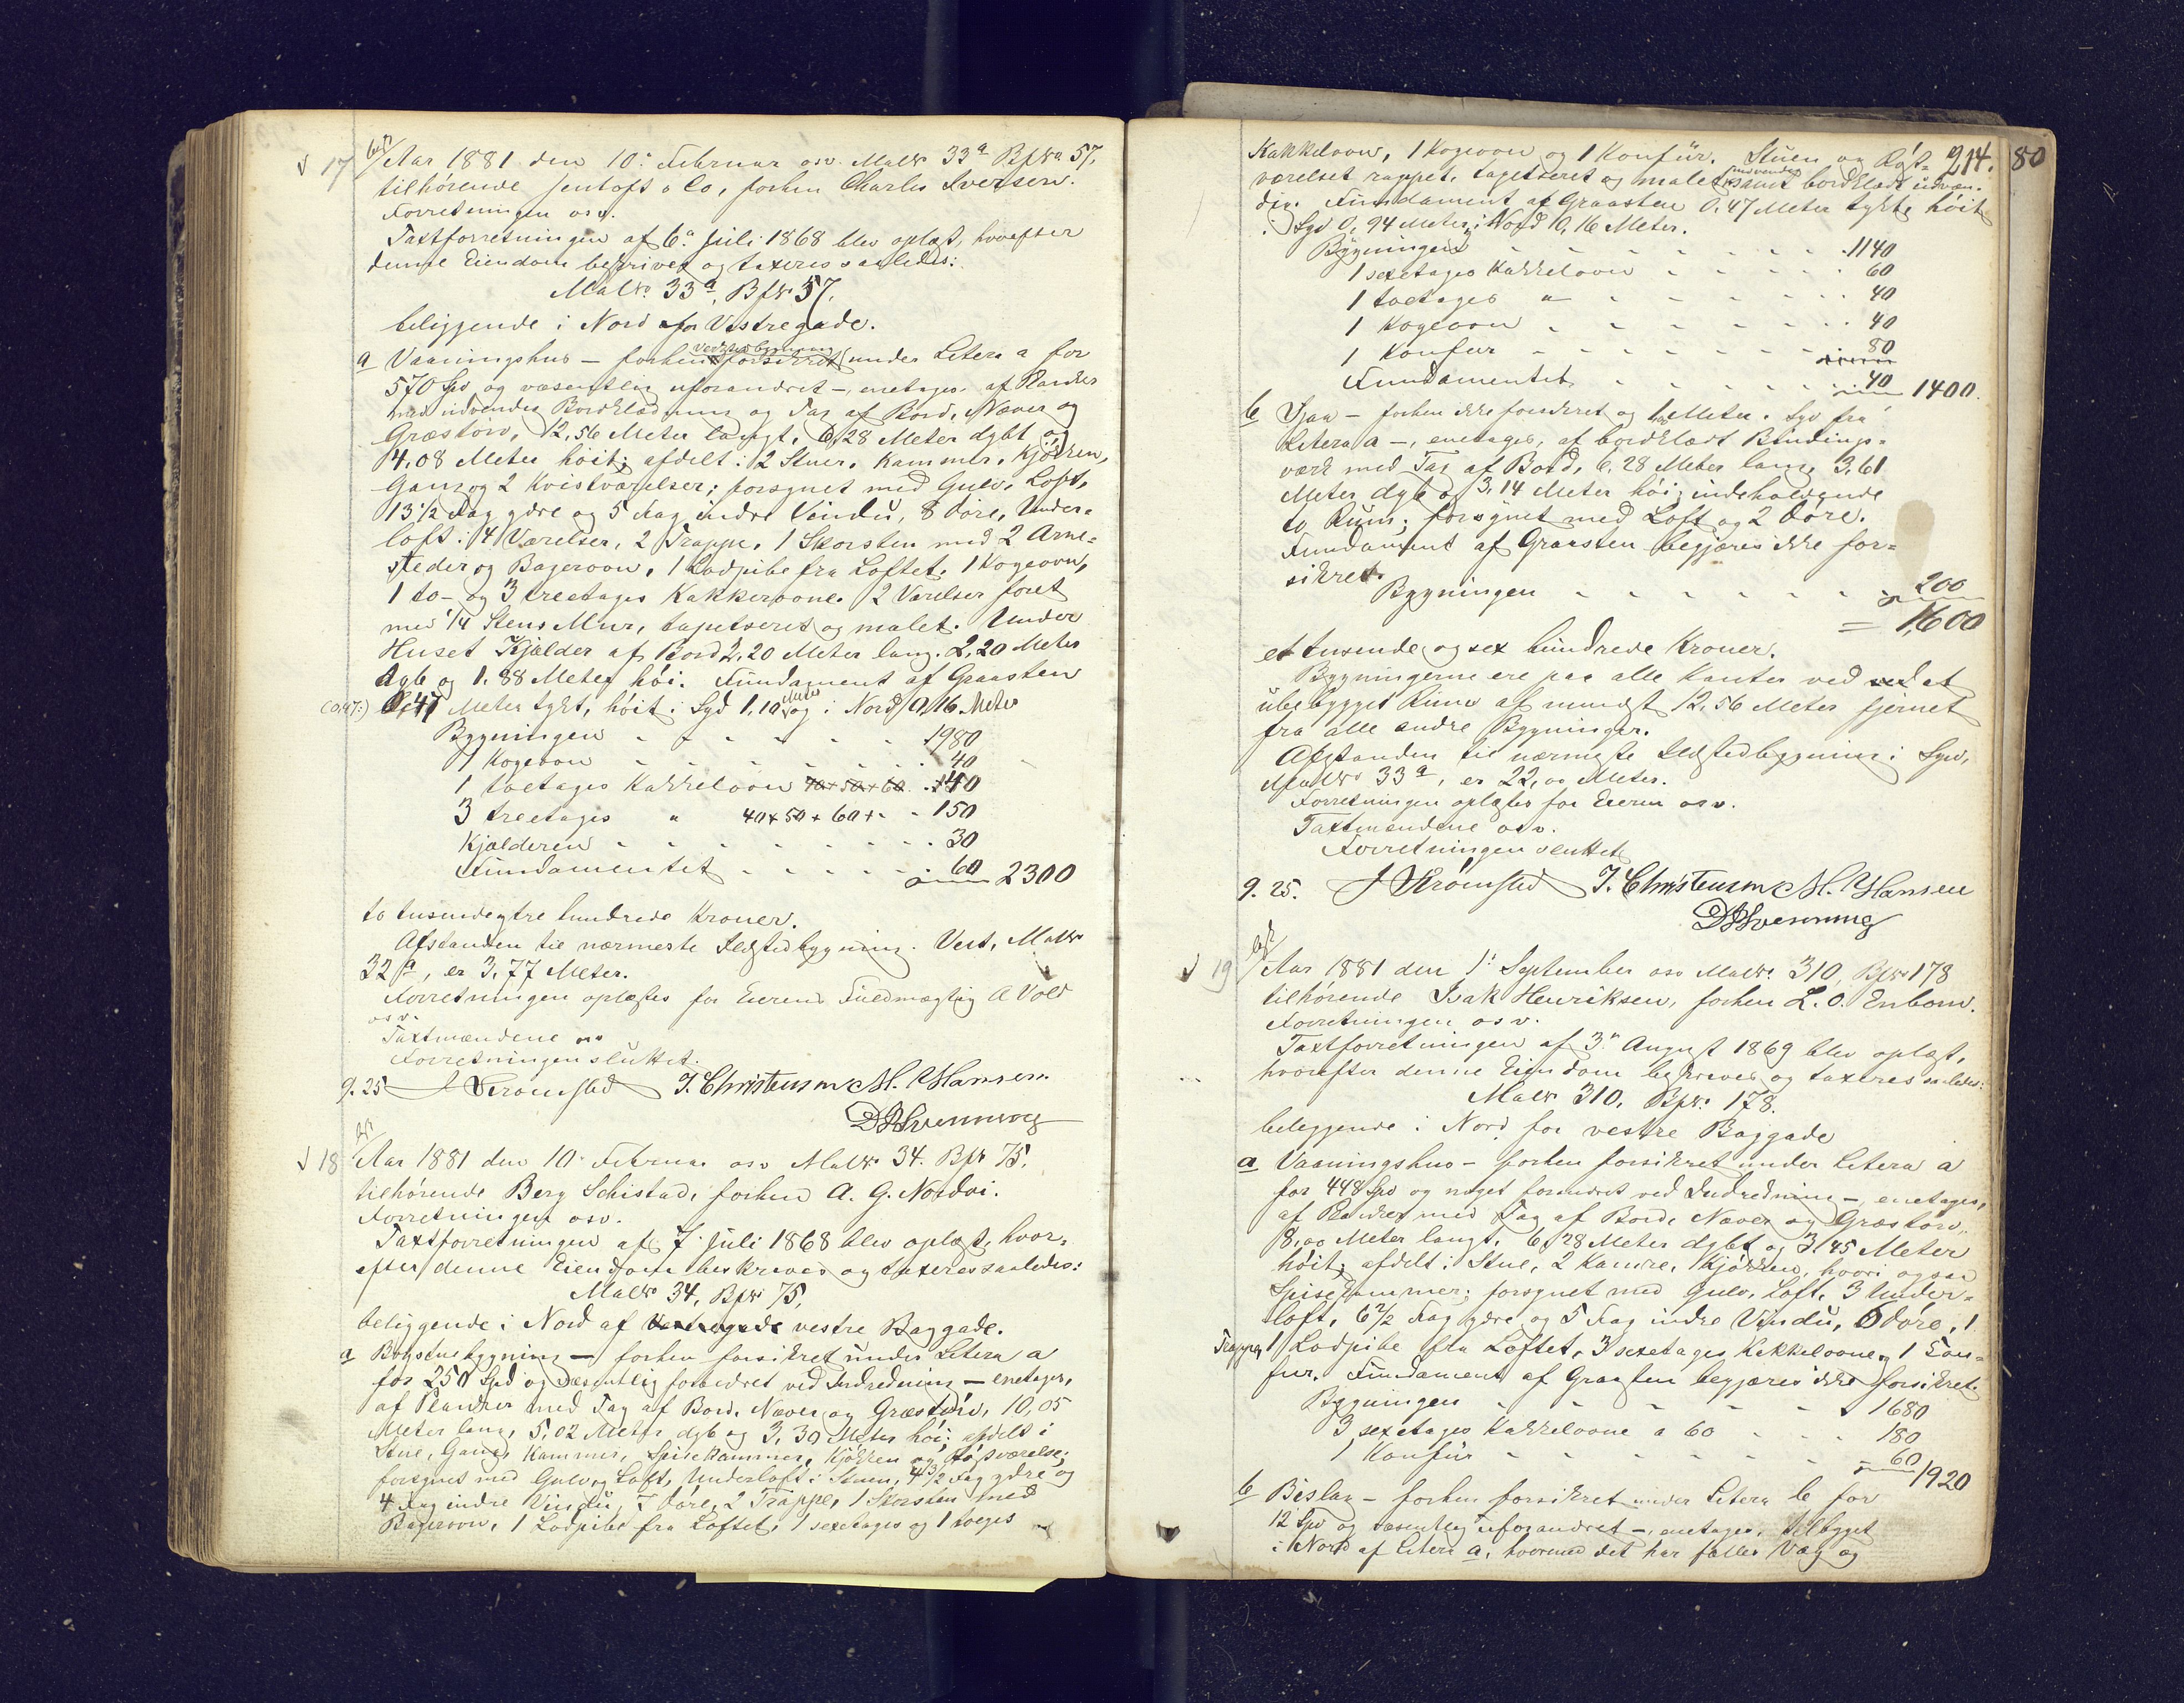 17 Aar 1881 den 10. Februar osv. Matr. 33a Bpr. 57,
tilhørende Jentoft & Co, forhen Charles Iversen.
Forretningen osv.
Taxtforretningen af 6. Juli 1868 blev oplæst, hvorefter
denne Eiendom beskrives og taxeres saaledes:
Matr. 33a, Bpr. 57,
beliggende i Nord for Vestregade.
a Vaaningshus – forhen forsikret under Litera a for
570 Spd og væsentlig uforandret –, enetages af Planker
med udvendig Bordklædning og Tag af Bord, Næver og
Græstørv, 12,56 Meter langt, 6,28 Meter dybt og
4,08 Meter høit; afdelt i 2 Stuer, Kammer, Kjøkken,
Gang og 2 Kvistværelser; forsynet med Gulv, Loft,
13 1/2 Fag ydre og 5 Fag indre Vindu, 8 Døre, Under-
loft i 4 Værelser, 2 Trappe, 1 Skorsten med 2 Arne-
steder og Bagerovn, 1 Lodpibe fra Loftet, 1 Kogeovn,
1 to- og 3 treetages Kakkelovne. 2 Værelser foret
med 1/4 Stens Mur, tapetseret og malet. Under
Huset Kjælder af Bord 2,20 Meter lang, 2,20 Meter
dyb og 1,88 Meter høi. Fundament af Graasten
(0,47:) 0,47 Meter tykt, høit i Syd 1,10 Meter og i Nord 0,16 Meter
Bygningen 1980
1 Kogeovn 40
1 toetages Kakkelovn 40
3 treetages " 40 + 50 + 60 150
Kjælderen 30
Fundamentet 60 2300
to tusende tre hundrede Kroner.
Afstanden til nærmeste Ildstedbygning i Vest, Matr.
32a, er 3,77 Meter.
Forretningen oplæstes for Eierens Fuldmægtig A Vold
osv.
Taxtmændene osv
Forretningen sluttet.
9.25 J Strømsted J. Christensen M. Hansen
18 Aar 1881 den 10. Februar osv Matr. 34. Bpr 75,
tilhørende Berg Schistad, forhen A. G. Nordvi.
Forretningen osv.
Taxtforretningen af 7. Juli 1868 blev oplæst, hvor-
efter denne Eiendom beskrives og taxeres saaledes:
Matr. 34, Bpr. 75,
beliggende i Nord af Vestregade vestre Baggade.
a Bygning – forhen forsikret under Litera a
for 250 Spd og væsentlig forandret ved Indredning – enetages,
af Planker med Tag af Bord, Næver og Græstørv, 10,05
Meter lang, 5,02 Meter dyb og 3,30 Meter høi; afdelt i
Stue, Gang, Kammer, Spisekammer, Kjøkken og
forsynet med Gulv og Loft, Underloft i Stuen, 4 1/2 Fag ydre og
4 Fag indre Vindu, 7 Døre, 2 Trappe, 1 Skorsten med
Bagerovn, 1 Lodpibe fra Loftet, 1 sexetages og 1 toeges
214. 80
Kakkelovn, 1 Kogeovn og 1 Konfür. Stuen og
værelset rappet, tapetseret og malet indvendig samt bordklædt udven-
dig. Fundament af Graasten 0,47 Meter tykt, høit
i Syd 0,94 Meter, i Nord 0,16 Meter.
Bygningen 1140
1 sexetages Kakkelovn 60
1 toetages " 40
1 Kogeovn 40
1 Konfur 80
Fundamentet 40 1400.
b Sjaa – forhen ikke forsikret og 1 Meter i Syd fra
Litera a –, enetages, af bordklædt Bindings-
værk med Tag af Bord, 6,28 Meter lang, 3,61
Meter dyb og 3,14 Meter høi; indeholdende
to Rum; forsynet med Loft og 2 Døre.
Fundament af Graasten begjæres ikke for-
sikret.
Bygningen 200
= 1600
et tusende og sex hundrede Kroner.
Bygningerne ere paa alle Kanter ved et
ubebygget Rum af mindst 12,56 Meter fjernet
fra alle andre Bygninger.
Afstanden til nærmeste Ildstedbygning i Syd,
Matr. 33a, er 22,00 Meter.
Forretningen oplæstes for Eieren osv.
Taxtmændene osv.
Forretningen sluttet
9.25. J Strømsted J. Christensen M. Hansen
19 Aar 1881 den 1. September osv Matr. 310, Bpr. 178
tilhørende Isak Henriksen, forhen L. O. Enbom.
Forretningen osv.
Taxtforretningen af 3. August 1869 blev oplæst,
hvorefter denne Eiendom beskrives og taxeres saaledes:
Matr. 310, Bpr. 178.
beliggende i Nord for vestre Baggade
a Vaaningshus – forhen forsikret under Litera a
for 448 Spd og noget forandret ved Indredning –, enetages,
af Planker med Tag af Bord, Næver og Græstørv,
8,00 Meter langt, 6,28 Meter dybt og 3,45 Meter
høit; afdelt i Stue, 2 Kamre, Kjøkken, hvori ogsaa
Spisekammer; forsynet med Gulv, Loft, 3 Under-
loft, 6 1/2 Fag ydre og 5 Fag indre Vindu, 6 Døre, 1
Trappe, 1 Lodpibe fra Loftet, 3 sexetages Kakkelovne, 1 Kon-
fur. Fundament af Graasten begjæres ikke forsikret.
Bygningen 1680
3 sexetages Kakkelovne a 60 180
1 Konfür 60 1920
b Bislag – forhen forsikret under Litera b for
12 Spd og væsentlig uforandret –, enetages, tilbygget
i Nord af Litera a, hvormed det har fælles Væg og